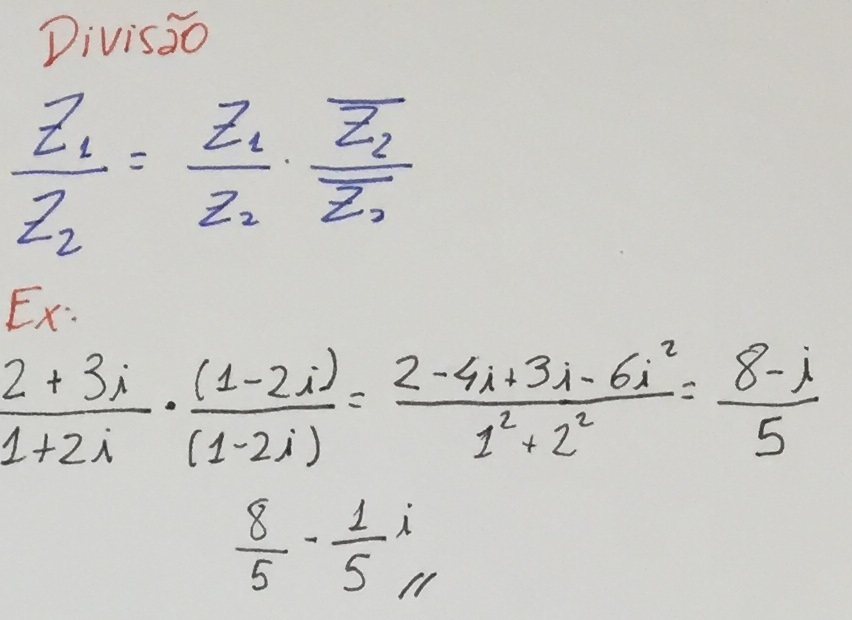 Divisão
Z₁/Z₂ = Z₁/Z₂ · Z̅₂/Z̅₂
Ex:
2 + 3i/1+2i · (1-2i)/(1-2i) = 2-4i+3i-6i²/1²+2² = 8-i/5
8/5 - 1/5 i //